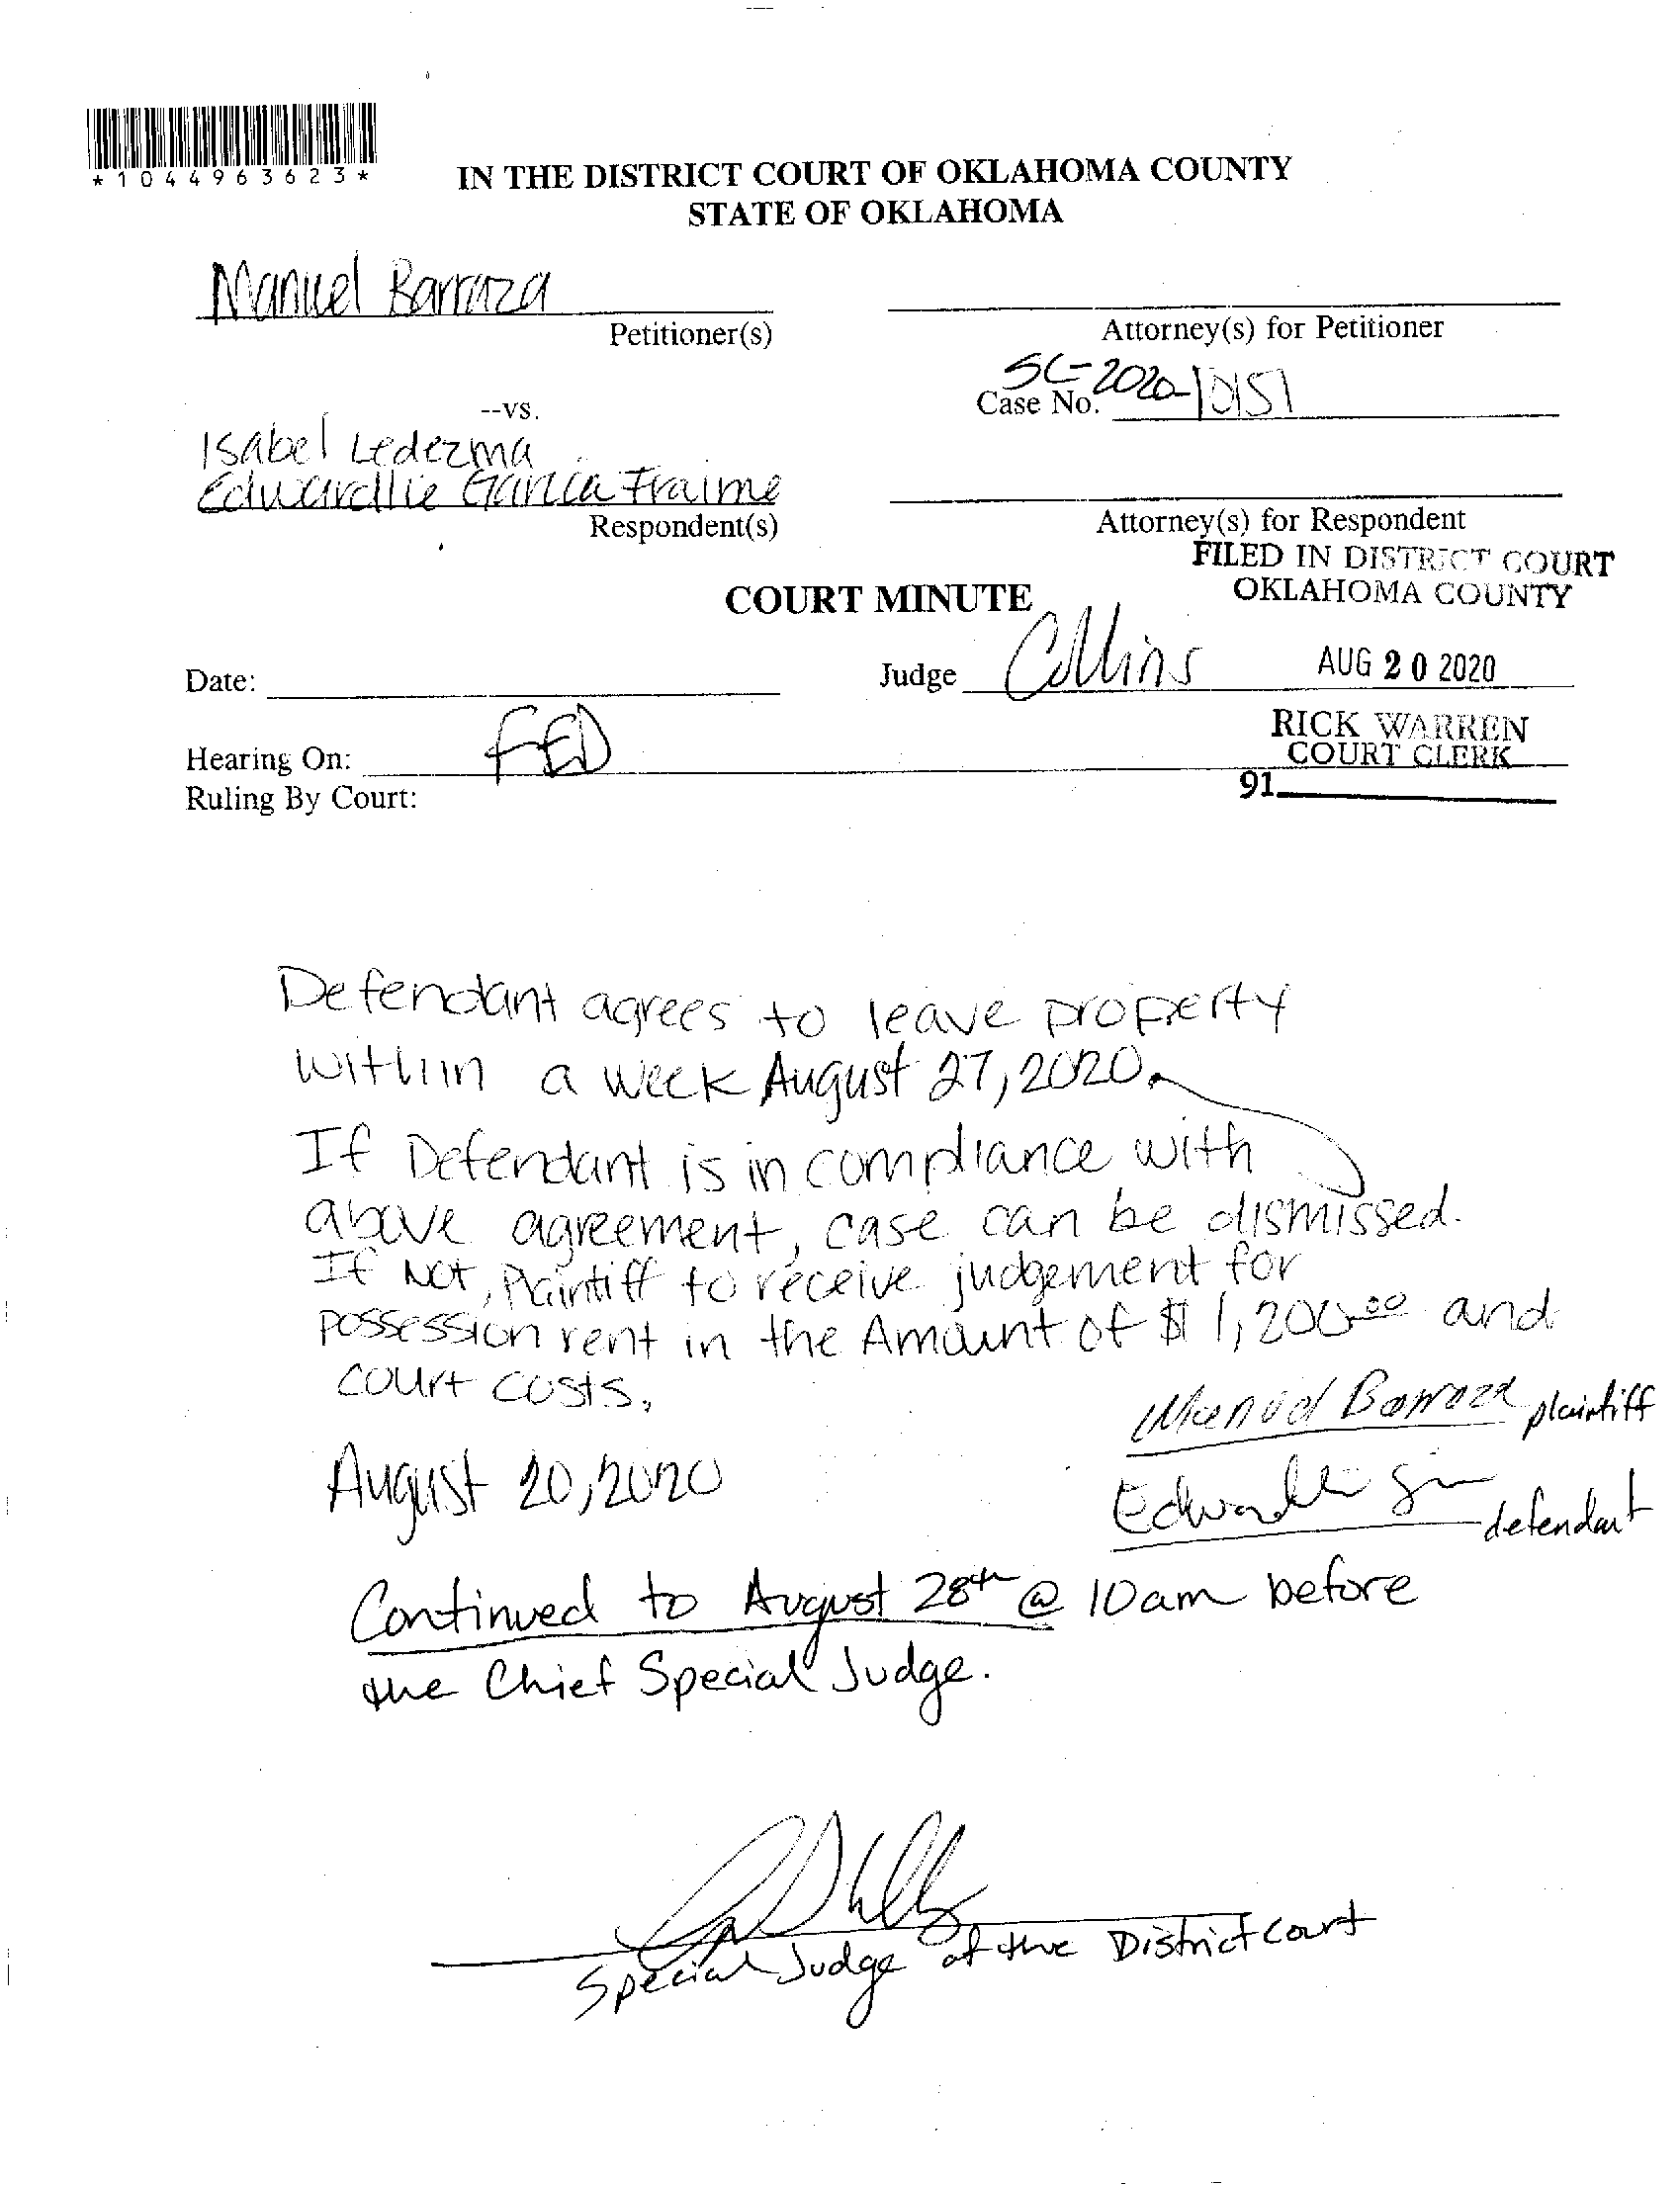 *1044963623*
IN THE DISTRICT COURT OF OKLAHOMA COUNTY
STATE OF OKLAHOMA
Manuel Barraza
Petitioner(s)
Attorney(s) for Petitioner
--vs.
Case No. SC-2020-10151
Isabel Ledezma
Edwardlie Garcia Fraime
Respondent(s)
Attorney(s) for Respondent
FILED IN DISTRICT COURT
OKLAHOMA COUNTY
COURT MINUTE
Date:
Judge Collins
AUG 20 2020
Hearing On: FED
RICK WARREN
COURT CLERK
91
Ruling By Court:
Defendant agrees to leave property
within a week August 27, 2020.
If Defendant is in compliance with
above agreement, case can be dismissed.
If Not, Plaintiff to receive judgement for
possession rent in the Amount of $1,200.00 and
court costs.
Manuel Barraza plaintiff
August 20, 2020
Edwardlie defendant
Continued to August 28th @ 10am before
the Chief Special Judge.
Special Judge of the District Court